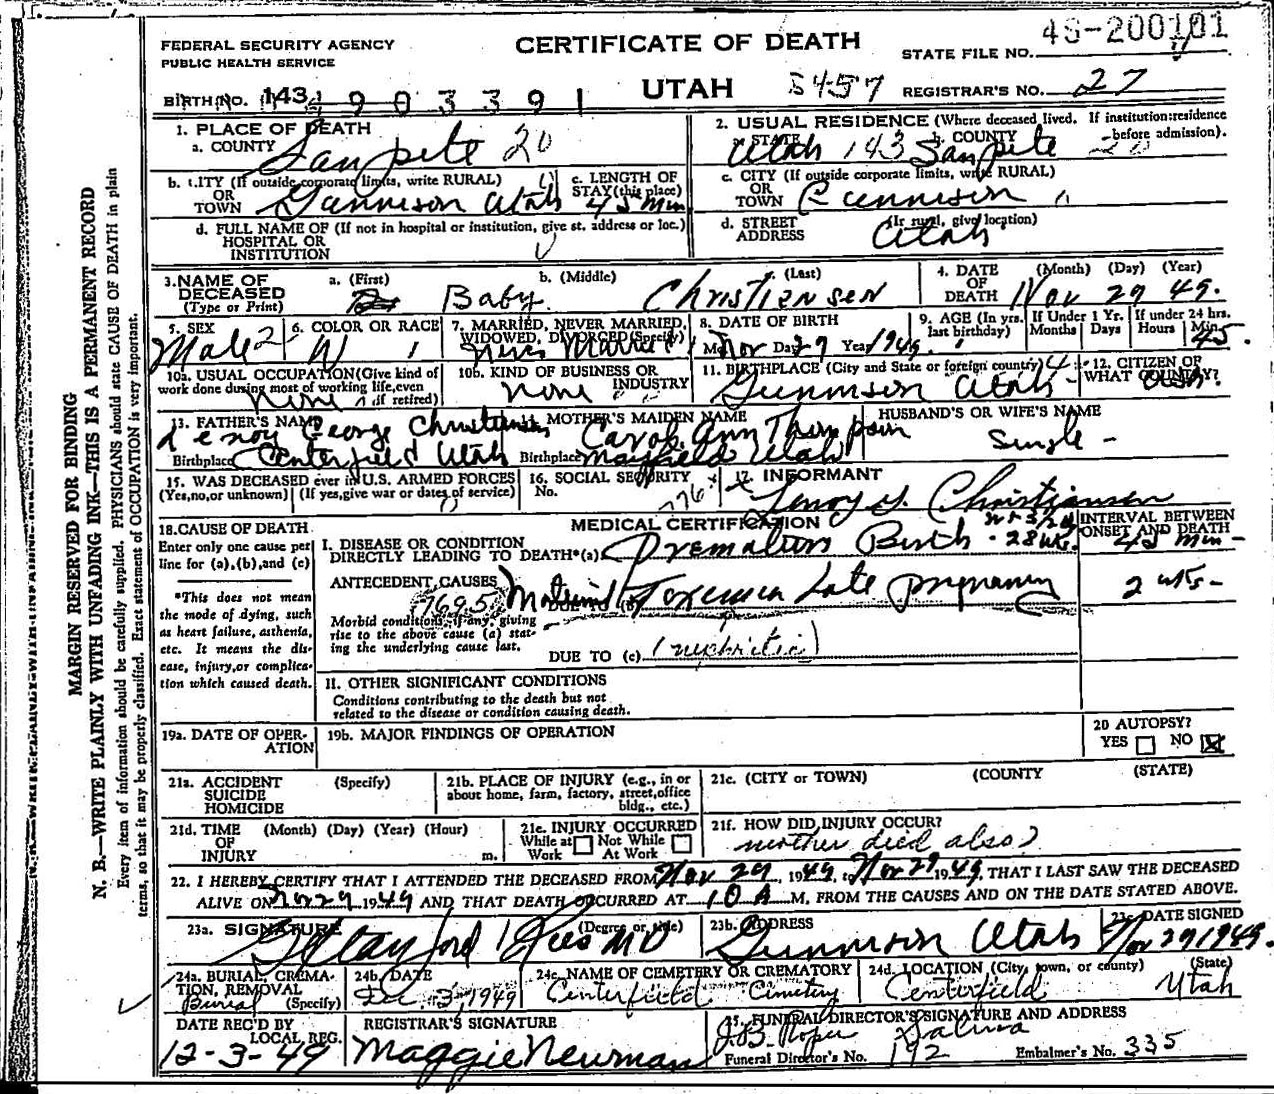 49-200101
FEDERAL SECURITY AGENCY
PUBLIC HEALTH SERVICE
CERTIFICATE OF DEATH
STATE FILE NO.
BIRTH NO. 143 4903391
UTAH 5457
REGISTRAR'S NO. 27
1. PLACE OF DEATH
a. COUNTY Sanpete 20
2. USUAL RESIDENCE (Where deceased lived. If institution: residence before admission).
a. STATE Utah 143 b. COUNTY Sanpete 20
b. CITY (If outside corporate limits, write RURAL)
OR TOWN Gunnison Utah
c. LENGTH OF STAY (this place) 45 Min
c. CITY (If outside corporate limits, write RURAL)
OR TOWN Gunnison
d. FULL NAME OF (If not in hospital or institution, give st. address or loc.)
HOSPITAL OR
INSTITUTION
d. STREET ADDRESS (If rural, give location)
Utah
3. NAME OF DECEASED (Type or Print)
a. (First) Baby
b. (Middle)
c. (Last) Christiensen
4. DATE OF DEATH (Month) (Day) (Year)
Nov 29 49.
5. SEX
Male 2
6. COLOR OR RACE
W 1
7. MARRIED, NEVER MARRIED, WIDOWED, DIVORCED (Specify)
Never Married
8. DATE OF BIRTH
Mo. Nov Day 29 Year 1949.
9. AGE (In yrs. last birthday)
If Under 1 Yr. Months Days
If under 24 hrs. Hours Min.
45.
10a. USUAL OCCUPATION (Give kind of work done during most of working life, even if retired)
none
10b. KIND OF BUSINESS OR INDUSTRY
none
11. BIRTHPLACE (City and State or foreign country)
Gunnison Utah
12. CITIZEN OF WHAT COUNTRY?
13. FATHER'S NAME
Lenoy George Christiansen
Birthplace Centerfield Utah
14. MOTHER'S MAIDEN NAME
Carol Ann Thompson
Birthplace Mayfield Utah
HUSBAND'S OR WIFE'S NAME
Single -
15. WAS DECEASED ever in U.S. ARMED FORCES
(Yes, no, or unknown) (If yes, give war or dates of service)
16. SOCIAL SECURITY No.
17. INFORMANT
Lenoy G. Christiansen
18. CAUSE OF DEATH
Enter only one cause per line for (a), (b), and (c)
*This does not mean the mode of dying, such as heart failure, asthenia, etc. It means the disease, injury, or complication which caused death.
MEDICAL CERTIFICATION
INTERVAL BETWEEN ONSET AND DEATH
I. DISEASE OR CONDITION
DIRECTLY LEADING TO DEATH* (a) Premature Birth - 28 wks. 45 Min -
ANTECEDENT CAUSES
7695 Maternal Toxemia Late pregnancy 2 wks -
DUE TO (b)
Morbid conditions, if any, giving rise to the above cause (a) stating the underlying cause last.
DUE TO (c) (nephritic)
II. OTHER SIGNIFICANT CONDITIONS
Conditions contributing to the death but not related to the disease or condition causing death.
19a. DATE OF OPERATION
19b. MAJOR FINDINGS OF OPERATION
20 AUTOPSY?
YES NO
21a. ACCIDENT SUICIDE HOMICIDE (Specify)
21b. PLACE OF INJURY (e.g., in or about home, farm, factory, street, office bldg., etc.)
21c. (CITY or TOWN) (COUNTY) (STATE)
21d. TIME OF INJURY (Month) (Day) (Year) (Hour) m.
21e. INJURY OCCURRED
While at Work Not While At Work
21f. HOW DID INJURY OCCUR?
mother died also)
22. I HEREBY CERTIFY THAT I ATTENDED THE DECEASED FROM Nov 29, 1949, to Nov 29 1949, THAT I LAST SAW THE DECEASED
ALIVE ON Nov 29 1949 AND THAT DEATH OCCURRED AT 10 A M, FROM THE CAUSES AND ON THE DATE STATED ABOVE.
23a. SIGNATURE (Degree or title)
G Stanford Rees MD
23b. ADDRESS
Gunnison Utah
23c. DATE SIGNED
Nov 29 1949.
24a. BURIAL, CREMATION, REMOVAL (Specify)
Burial
24b. DATE
Dec 3, 1949
24c. NAME OF CEMETERY OR CREMATORY
Centerfield Cemetery
24d. LOCATION (City, town, or county) (State)
Centerfield Utah
DATE REC'D BY LOCAL REG.
12-3-49
REGISTRAR'S SIGNATURE
Maggie Newman
25. FUNERAL DIRECTOR'S SIGNATURE AND ADDRESS
J.B. Roper Salina
Funeral Director's No. 192
Embalmer's No. 335
MARGIN RESERVED FOR BINDING
N. B.—WRITE PLAINLY WITH UNFADING INK—THIS IS A PERMANENT RECORD
Every item of information should be carefully supplied. PHYSICIANS should state CAUSE OF DEATH in plain
terms, so that it may be properly classified. Exact statement of OCCUPATION is very important.